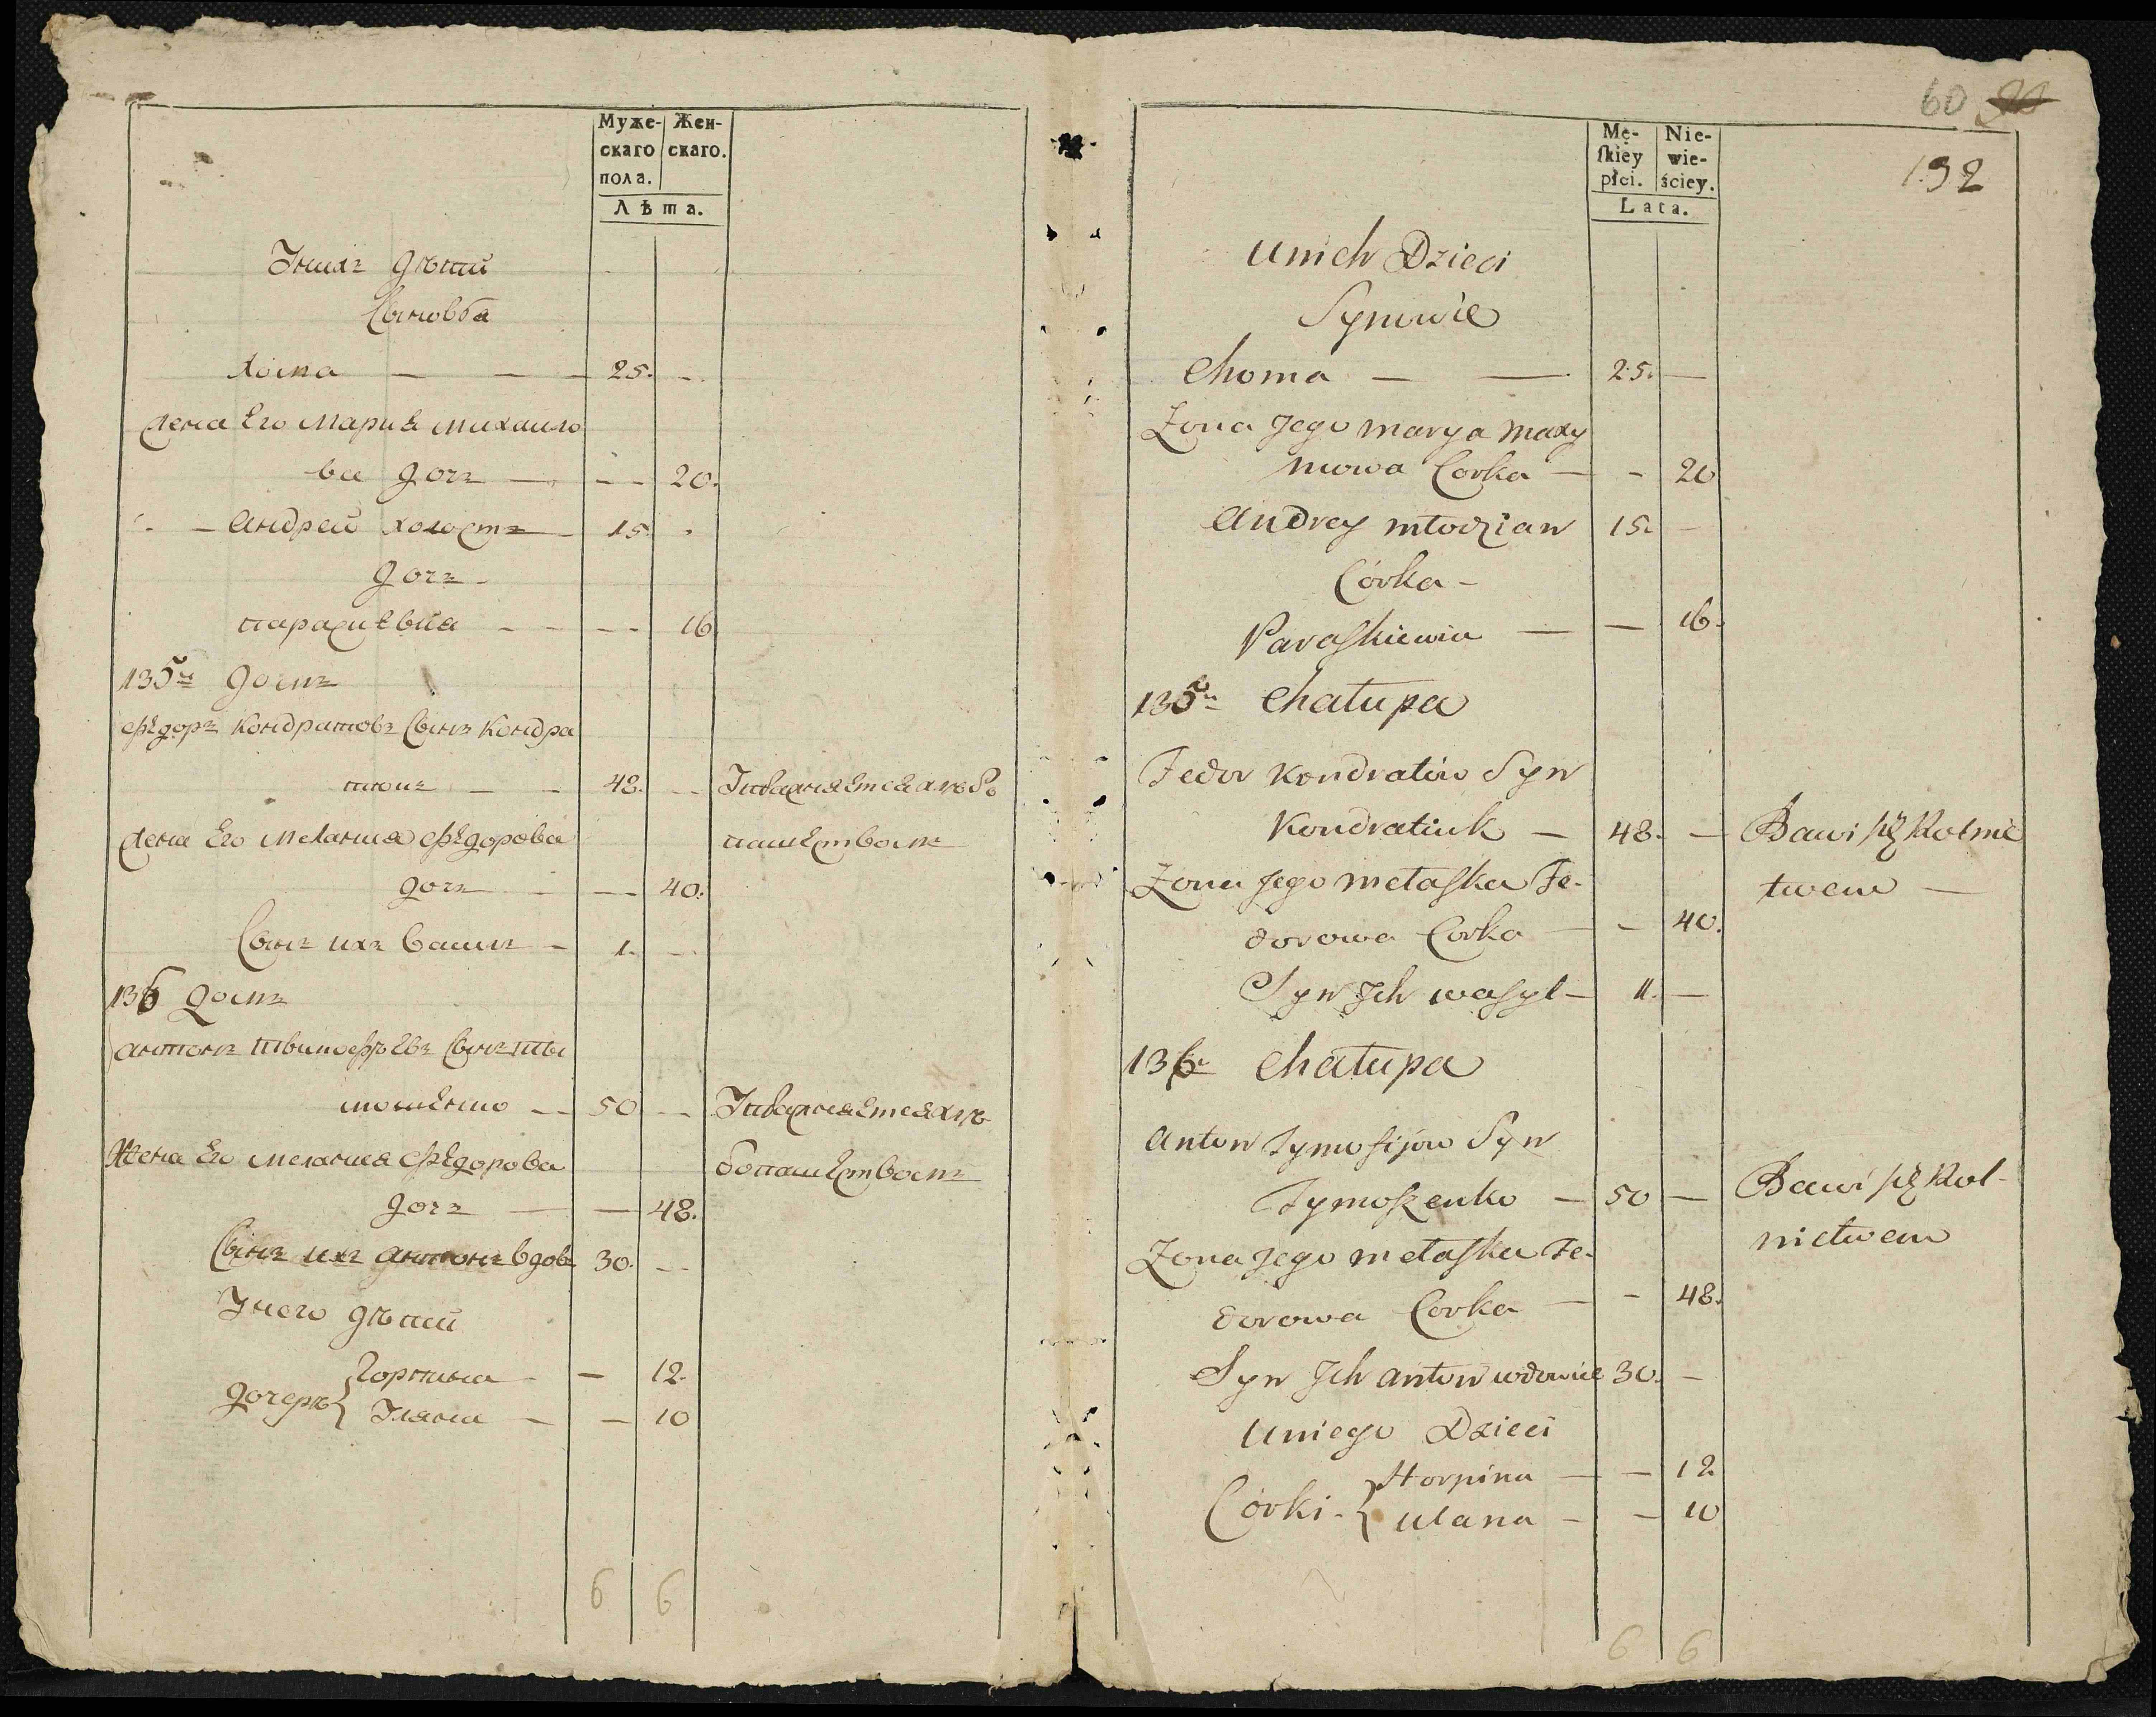 Муже-
скаго
пола.
Жен-
скаго.
Лѣта.
Унихъ дѣтей
Сыновья
Хома — — — 25. —
жена Его Мария Михаило
ва дочь — — — 20.
Андрей холостъ — 15.
дочь —
параскѣвия — — — — 16
135й домъ
Фѣдоръ Кондратовъ Сынъ Кондра
тюкъ — — 48. — Упражняется хлѣбо
жена Его Меланія Фѣдорова пашествомъ
дочь — — 40.
Сынъ ихъ Василь — 1. —
136 домъ
антонъ тимофѣевъ Сынъ ты
мошенко — 50 — Упражняется хлѣ
Жена Его Мелания Фѣдорова бопашествомъ
дочь — — 48.
Сынъ ихъ антонъ вдовъ 30. —
Унего дѣтей
дочерѣ { Горпина — — 12.
Уляна — — 10
6 6
60
192
Mę-
skiey
płci.
Nie-
wie-
ściey.
Lata.
Unich Dzieci
Synowie
Choma — — 25. —
Żona Jego marya maxy
mowa Corka — — 20
Andrey młodzian 15. —
Córka —
Paraskiewia — — 16.
135a Chałupa
Fedor Kondratiw Syn
Kondratiuk — 48. — Bawi się Rolnic
Żona Jego mełaszka Fe- twem —
dorowa Corka — — 40.
Syn Jch wasyl — 11. —
136a Chałupa
Anton Tymofijow Syn
Tymoszenko — 50 — Bawi się Rol-
Żona Jego mełaszka Fe- nictwem
dorowa Corka — — 48.
Syn Jch anton wdowiec 30. —
Uniego Dzieci
Córki — { Horpina — — 12
Ulana — — 10
6 6